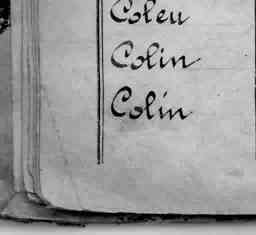 Coleu
Colin
Colin